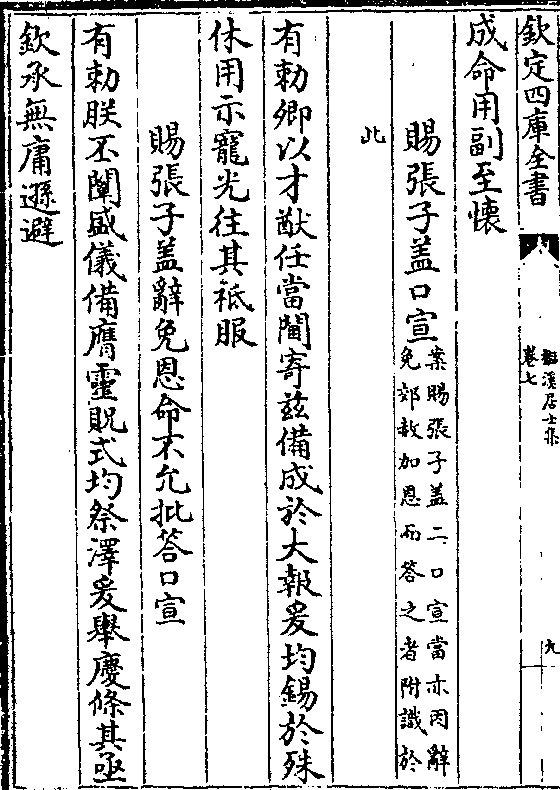 欽定四庫全書
卷七
溪居士集
九
成命用副至懷
賜張子盖口宣
案賜張子盖二口宣當亦因辭
免郊赦加恩而答之者附識於
此
有勅卿以才猷任當閫寄兹備成於大報爰均錫於殊
休用示寵光往其祗服
賜張子盖辭免恩命不允批答口宣
有勅朕丕闡盛儀備膺靈貺式均祭澤爰舉慶條其亟
欽承無庸遜避